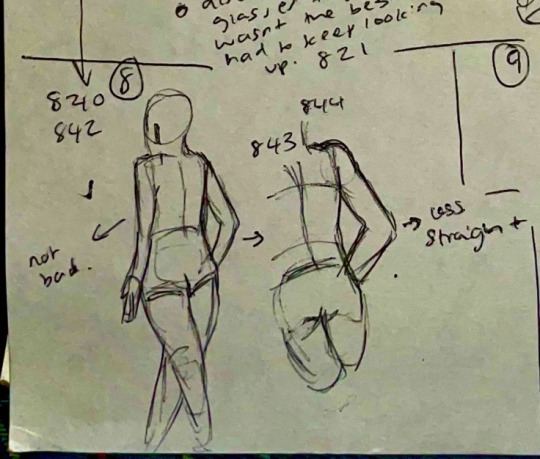 glasses
wasnt the bes
had to keep looking
up. 821
8
9
840
842
844
843
not
bad.
less
straight